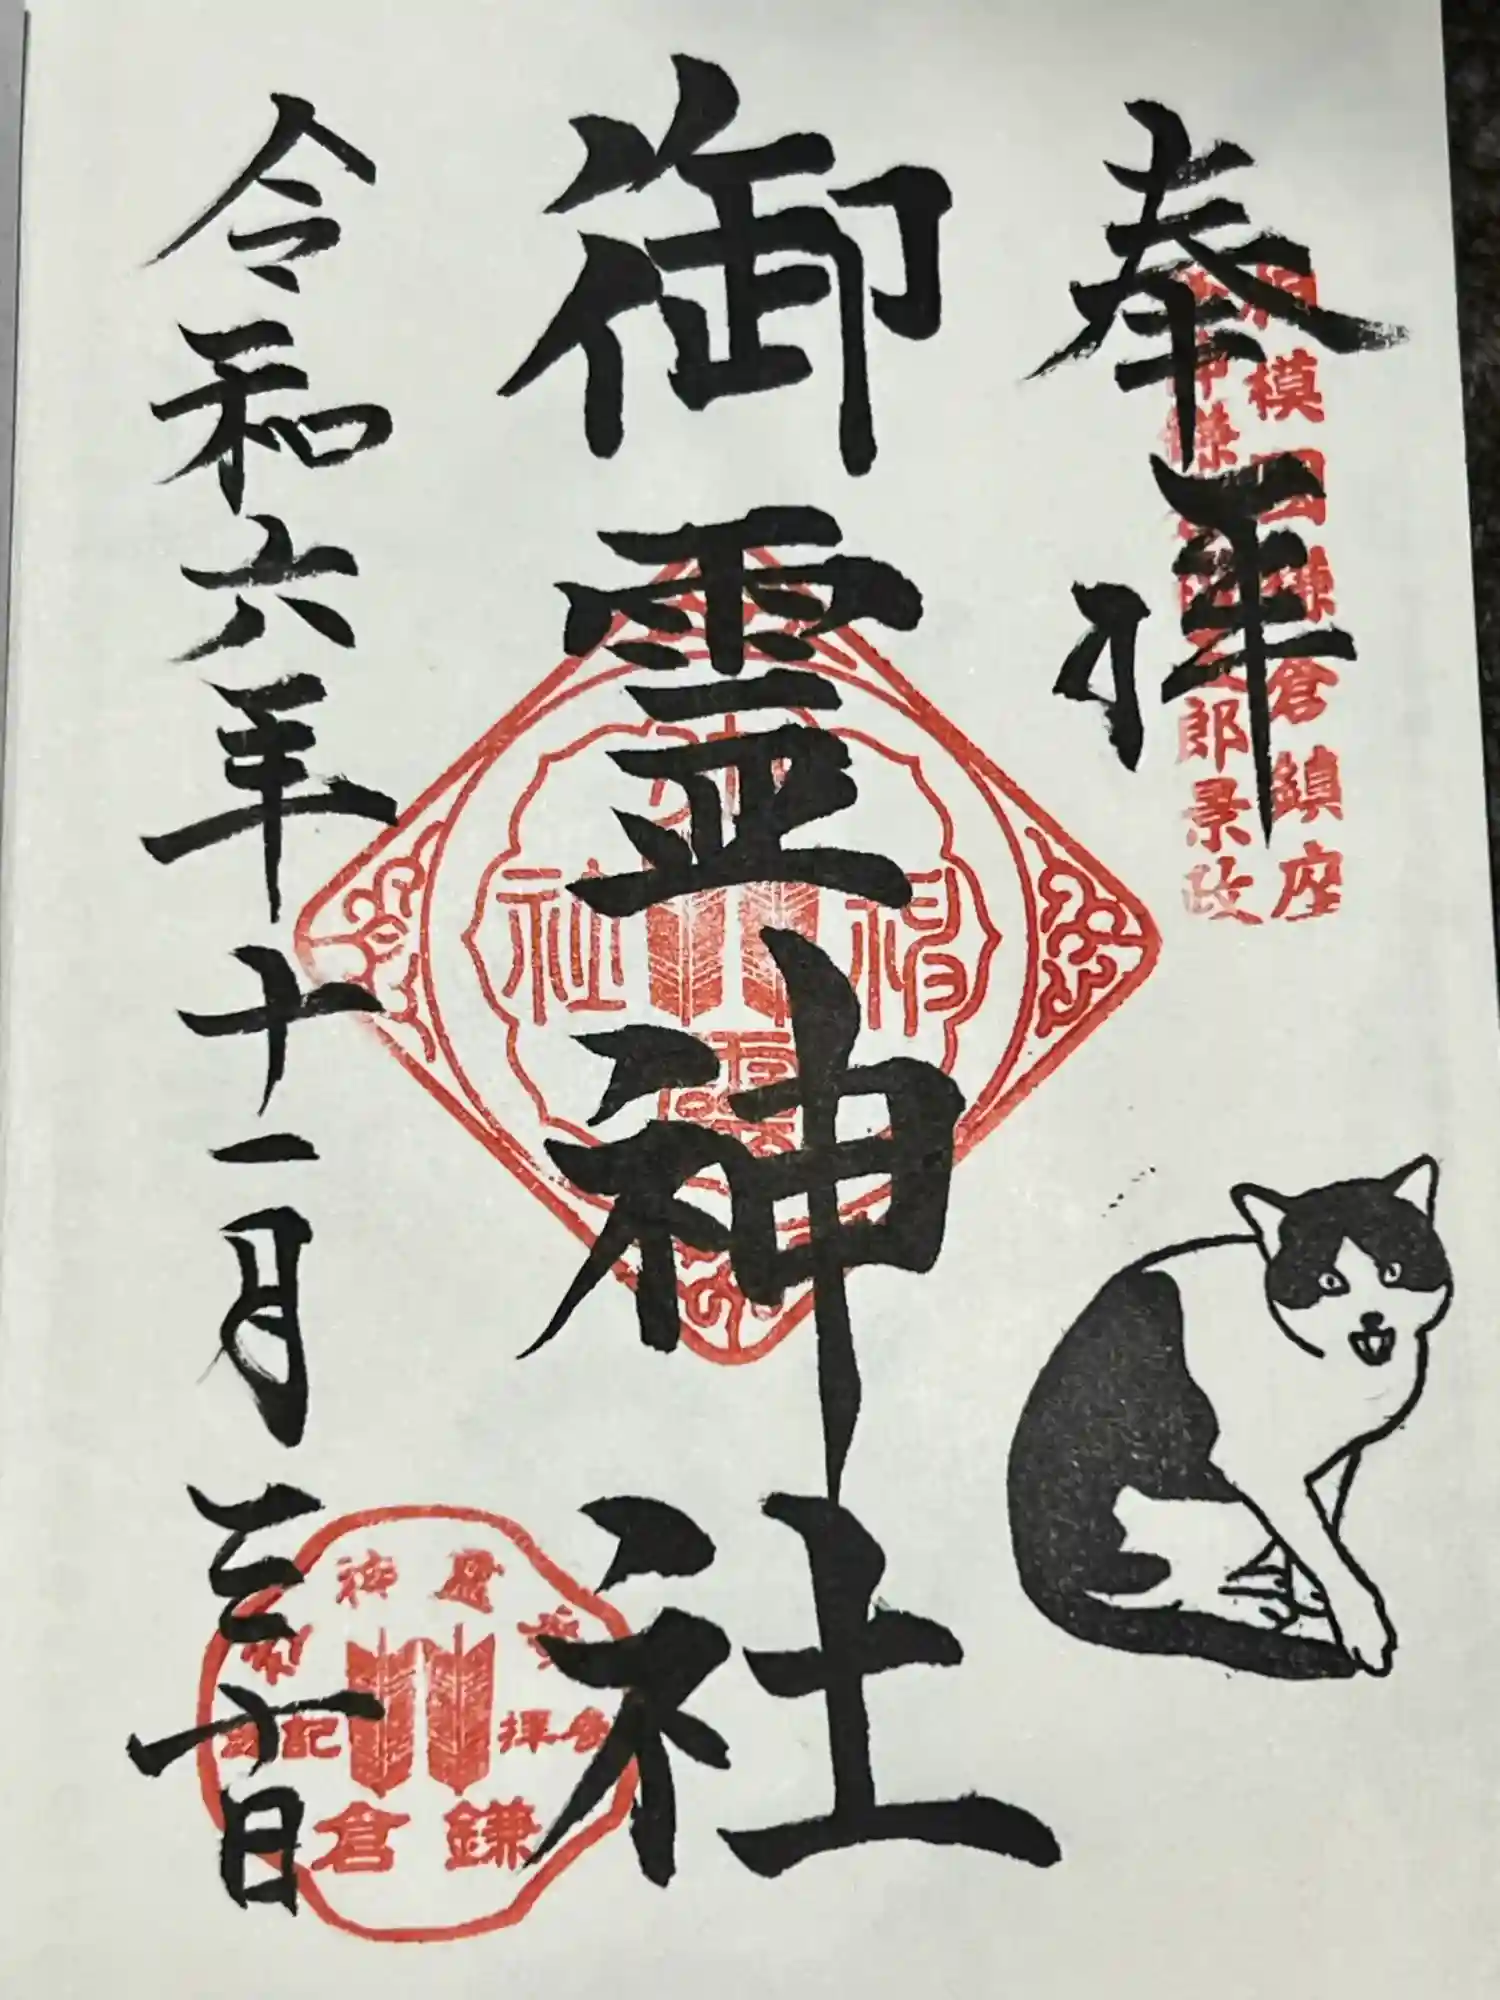 奉拝
相模国鎌倉鎮座
祭神鎌倉権五郎景政
御霊神社
令和六年十一月三十日
参拝記念
鎌倉